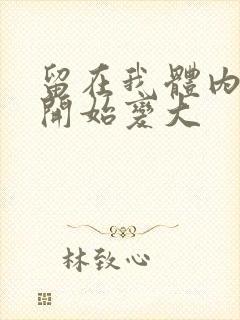 留在我體內
開始變大
林致心